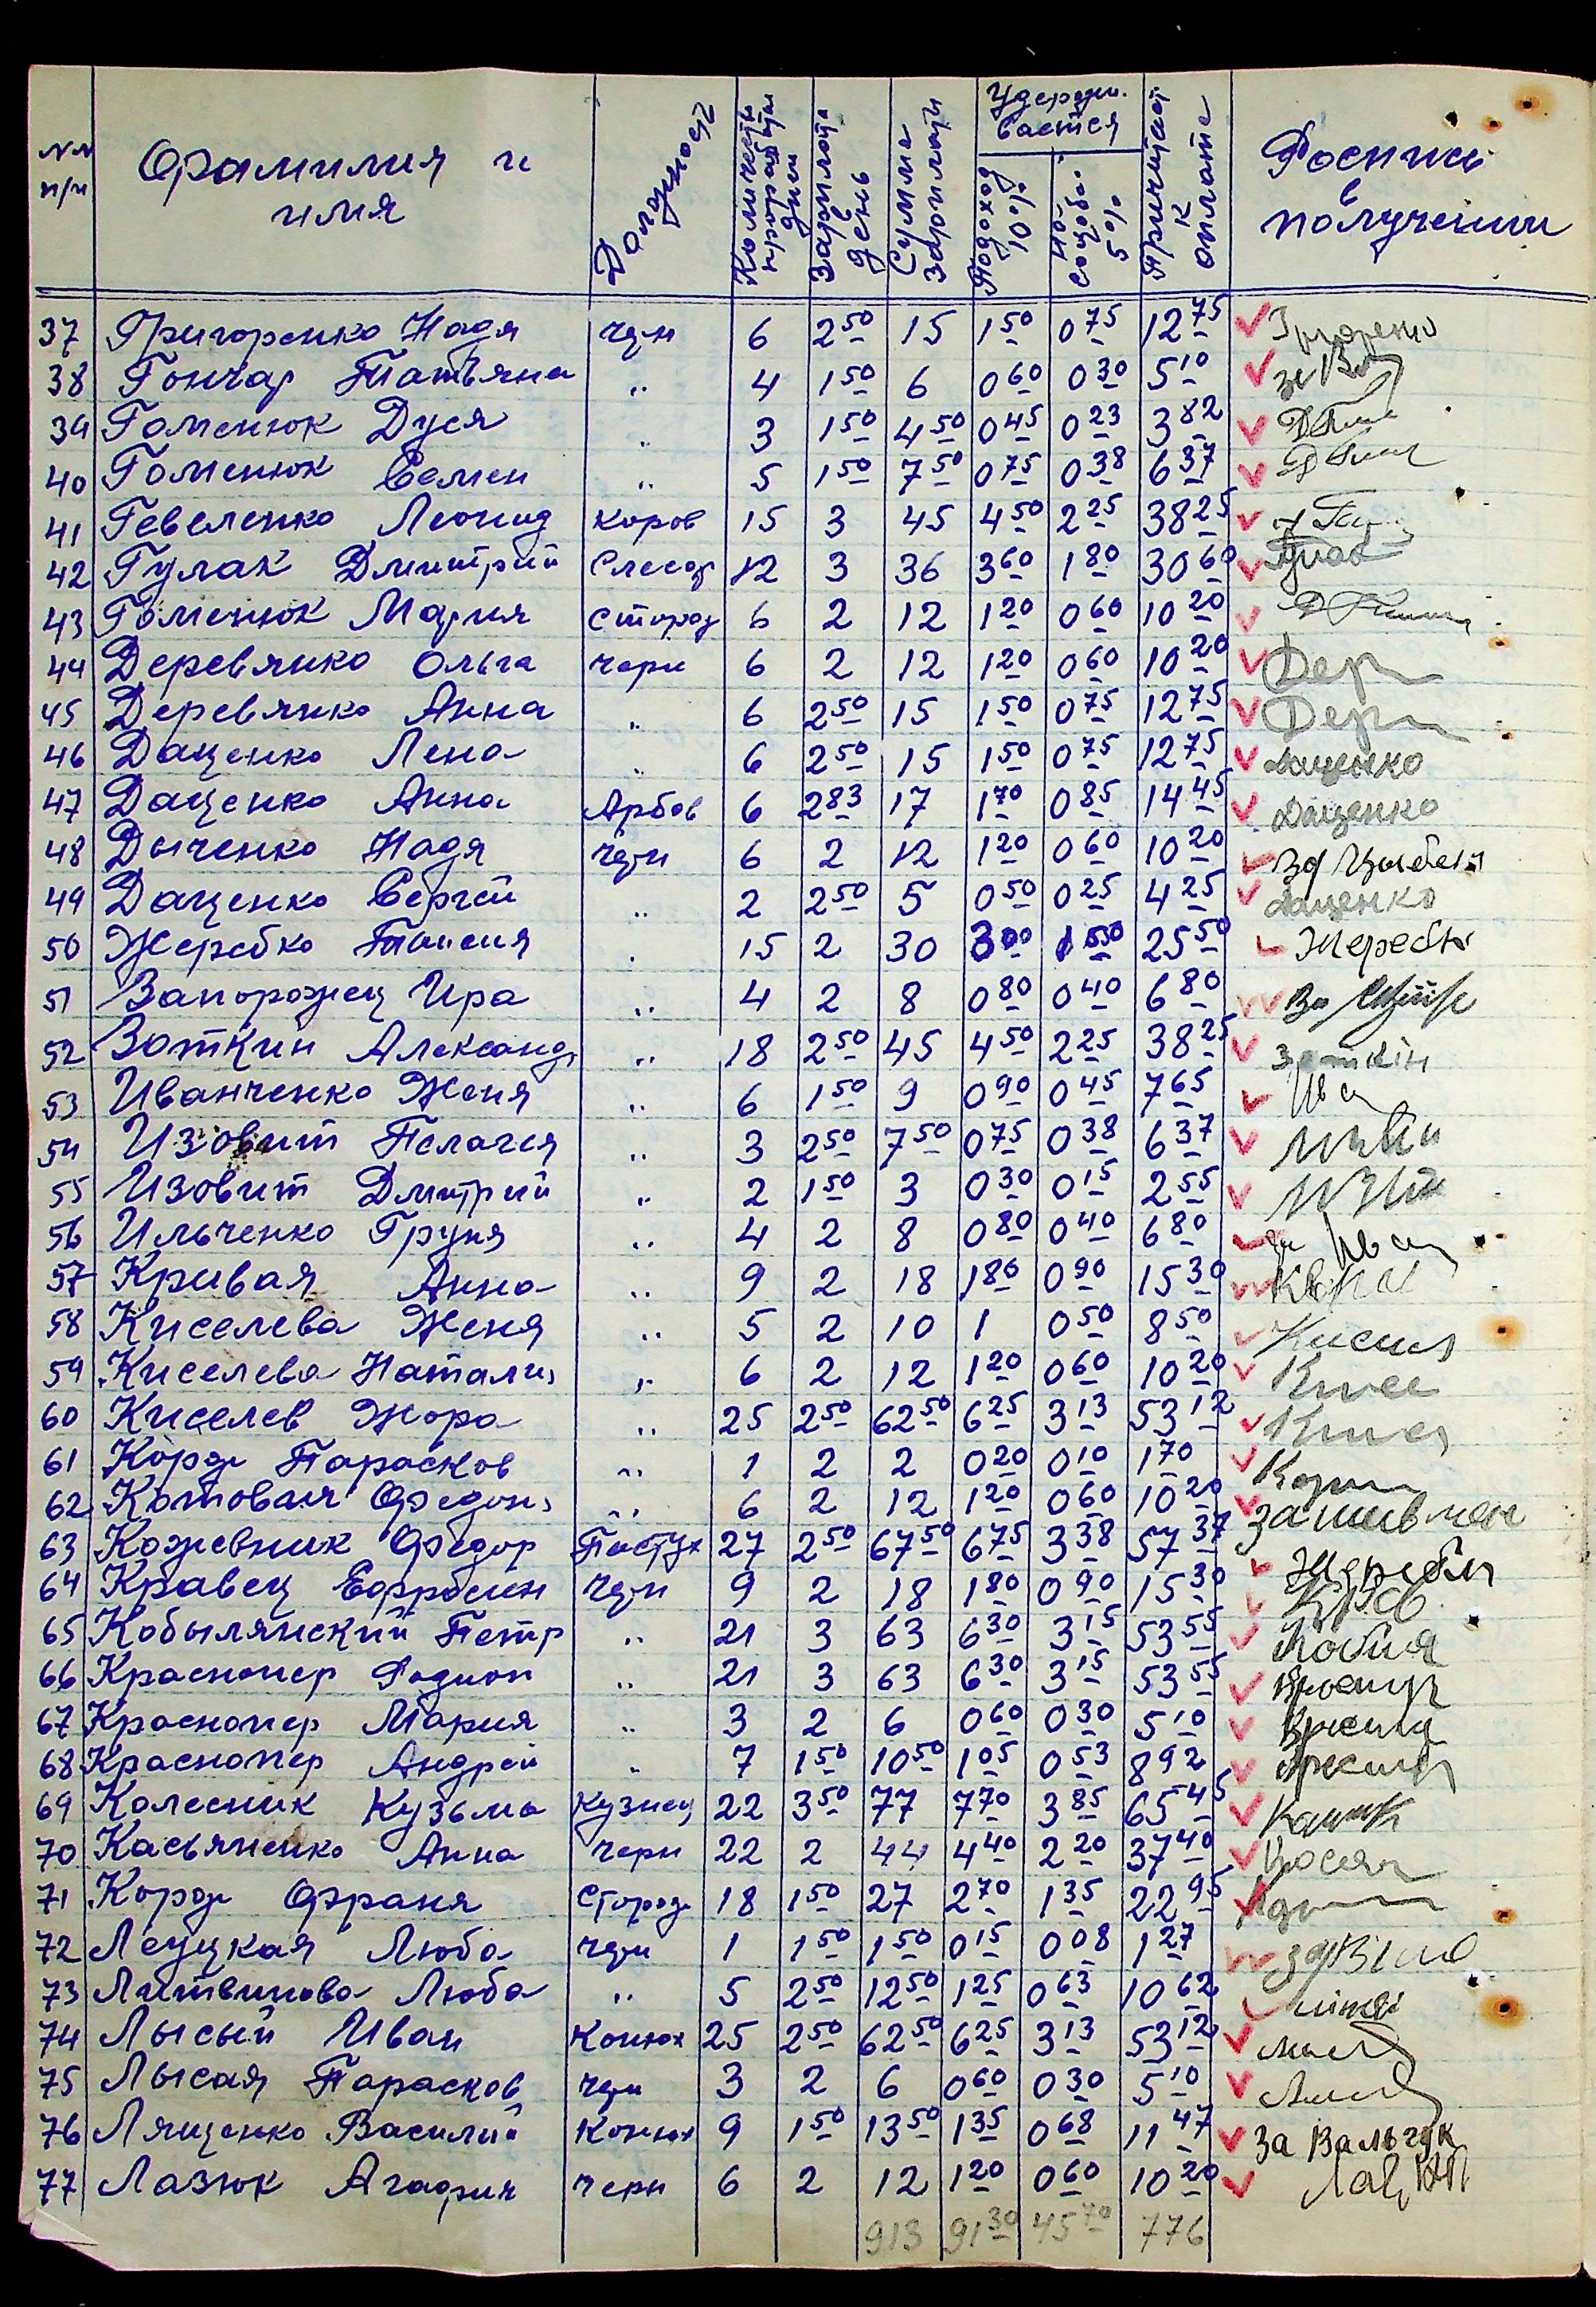 №№ п/п Фамилия и имя Должность Количеств прораб дни Зарплата в день Сумма зарплаты Удержи- вается Подоход 10% по соцобес. 5% Причитает к оплате Роспись в получении
37 Григоренко Надя черн 6 2 50 15 1 50 0 75 12 75
38 Гончар Татьяна " 4 1 50 6 0 60 0 30 5 10
39 Гоменюк Дуся " 3 1 50 4 50 0 45 0 23 3 82
40 Гоменюк Семен " 5 1 50 7 50 0 75 0 38 6 37
41 Гевеленко Леонид Коров 15 3 45 4 50 2 25 38 25
42 Гулак Дмитрий Слесар 12 3 36 3 60 1 80 30 60
43 Гоменюк Мария Сторож 6 2 12 1 20 0 60 10 20
44 Деревянко Ольга черн 6 2 12 1 20 0 60 10 20 Дер
45 Деревянко Анна " 6 2 50 15 1 50 0 75 12 75 Дер
46 Даценко Лена " 6 2 50 15 1 50 0 75 12 75 Даценко
47 Даценко Анна Арбов 6 2 83 17 1 70 0 85 14 45 Даценко
48 Дыченко Надя черн 6 2 12 1 20 0 60 10 20
49 Даценко Сергей " 2 2 50 5 0 50 0 25 4 25 Даценко
50 Жеребко Таисия " 15 2 30 3 00 1 50 25 50
51 Запорожец Ира " 4 2 8 0 80 0 40 6 80 За
52 Зоткин Александ " 18 2 50 45 4 50 2 25 38 25 Зоткін
53 Иванченко Женя " 6 1 50 9 0 90 0 45 7 65 Ива
54 Изовит Пелагея " 3 2 50 7 50 0 75 0 38 6 37
55 Изовит Дмитрий " 2 1 50 3 0 30 0 15 2 55
56 Ильченко Груня " 4 2 8 0 80 0 40 6 80 за Иван
57 Кривая Анна " 9 2 18 1 80 0 90 15 30
58 Киселева Женя " 5 2 10 1 0 50 8 50
59 Киселева Натали " 6 2 12 1 20 0 60 10 20
60 Киселев Жора " 25 2 50 62 50 6 25 3 13 53 12
61 Корж Парасков " 1 2 2 0 20 0 10 1 70
62 Котовая Федон " 6 2 12 1 20 0 60 10 20
63 Кожевник Федор Пастух 27 2 50 67 50 6 75 3 38 57 37
64 Кравец Ефросин черн 9 2 18 1 80 0 90 15 30
65 Кобылянский Петр " 21 3 63 6 30 3 15 53 55
66 Краснопер Родион " 21 3 63 6 30 3 15 53 55
67 Краснопер Мария " 3 2 6 0 60 0 30 5 10
68 Краснопер Андрей " 7 1 50 10 50 1 05 0 53 8 92
69 Колесник Кузьма Кузнец 22 3 50 77 7 70 3 85 65 45
70 Касьяненко Анна черн 22 2 44 4 40 2 20 37 40
71 Корж Франя Сторож 18 1 50 27 2 70 1 35 22 95
72 Леуцкая Люба черн 1 1 50 1 50 0 15 0 08 1 27
73 Литвинова Люба " 5 2 50 12 50 1 25 0 63 10 62
74 Лысый Иван Конюх 25 2 50 62 50 6 25 3 13 53 12
75 Лысая Парасков черн 3 2 6 0 60 0 30 5 10
76 Лященко Василий Конюх 9 1 50 13 50 1 35 0 68 11 47 За Вальчук
77 Лазюк Агафия черн 6 2 12 1 20 0 60 10 20
913 91 30 45 70 776